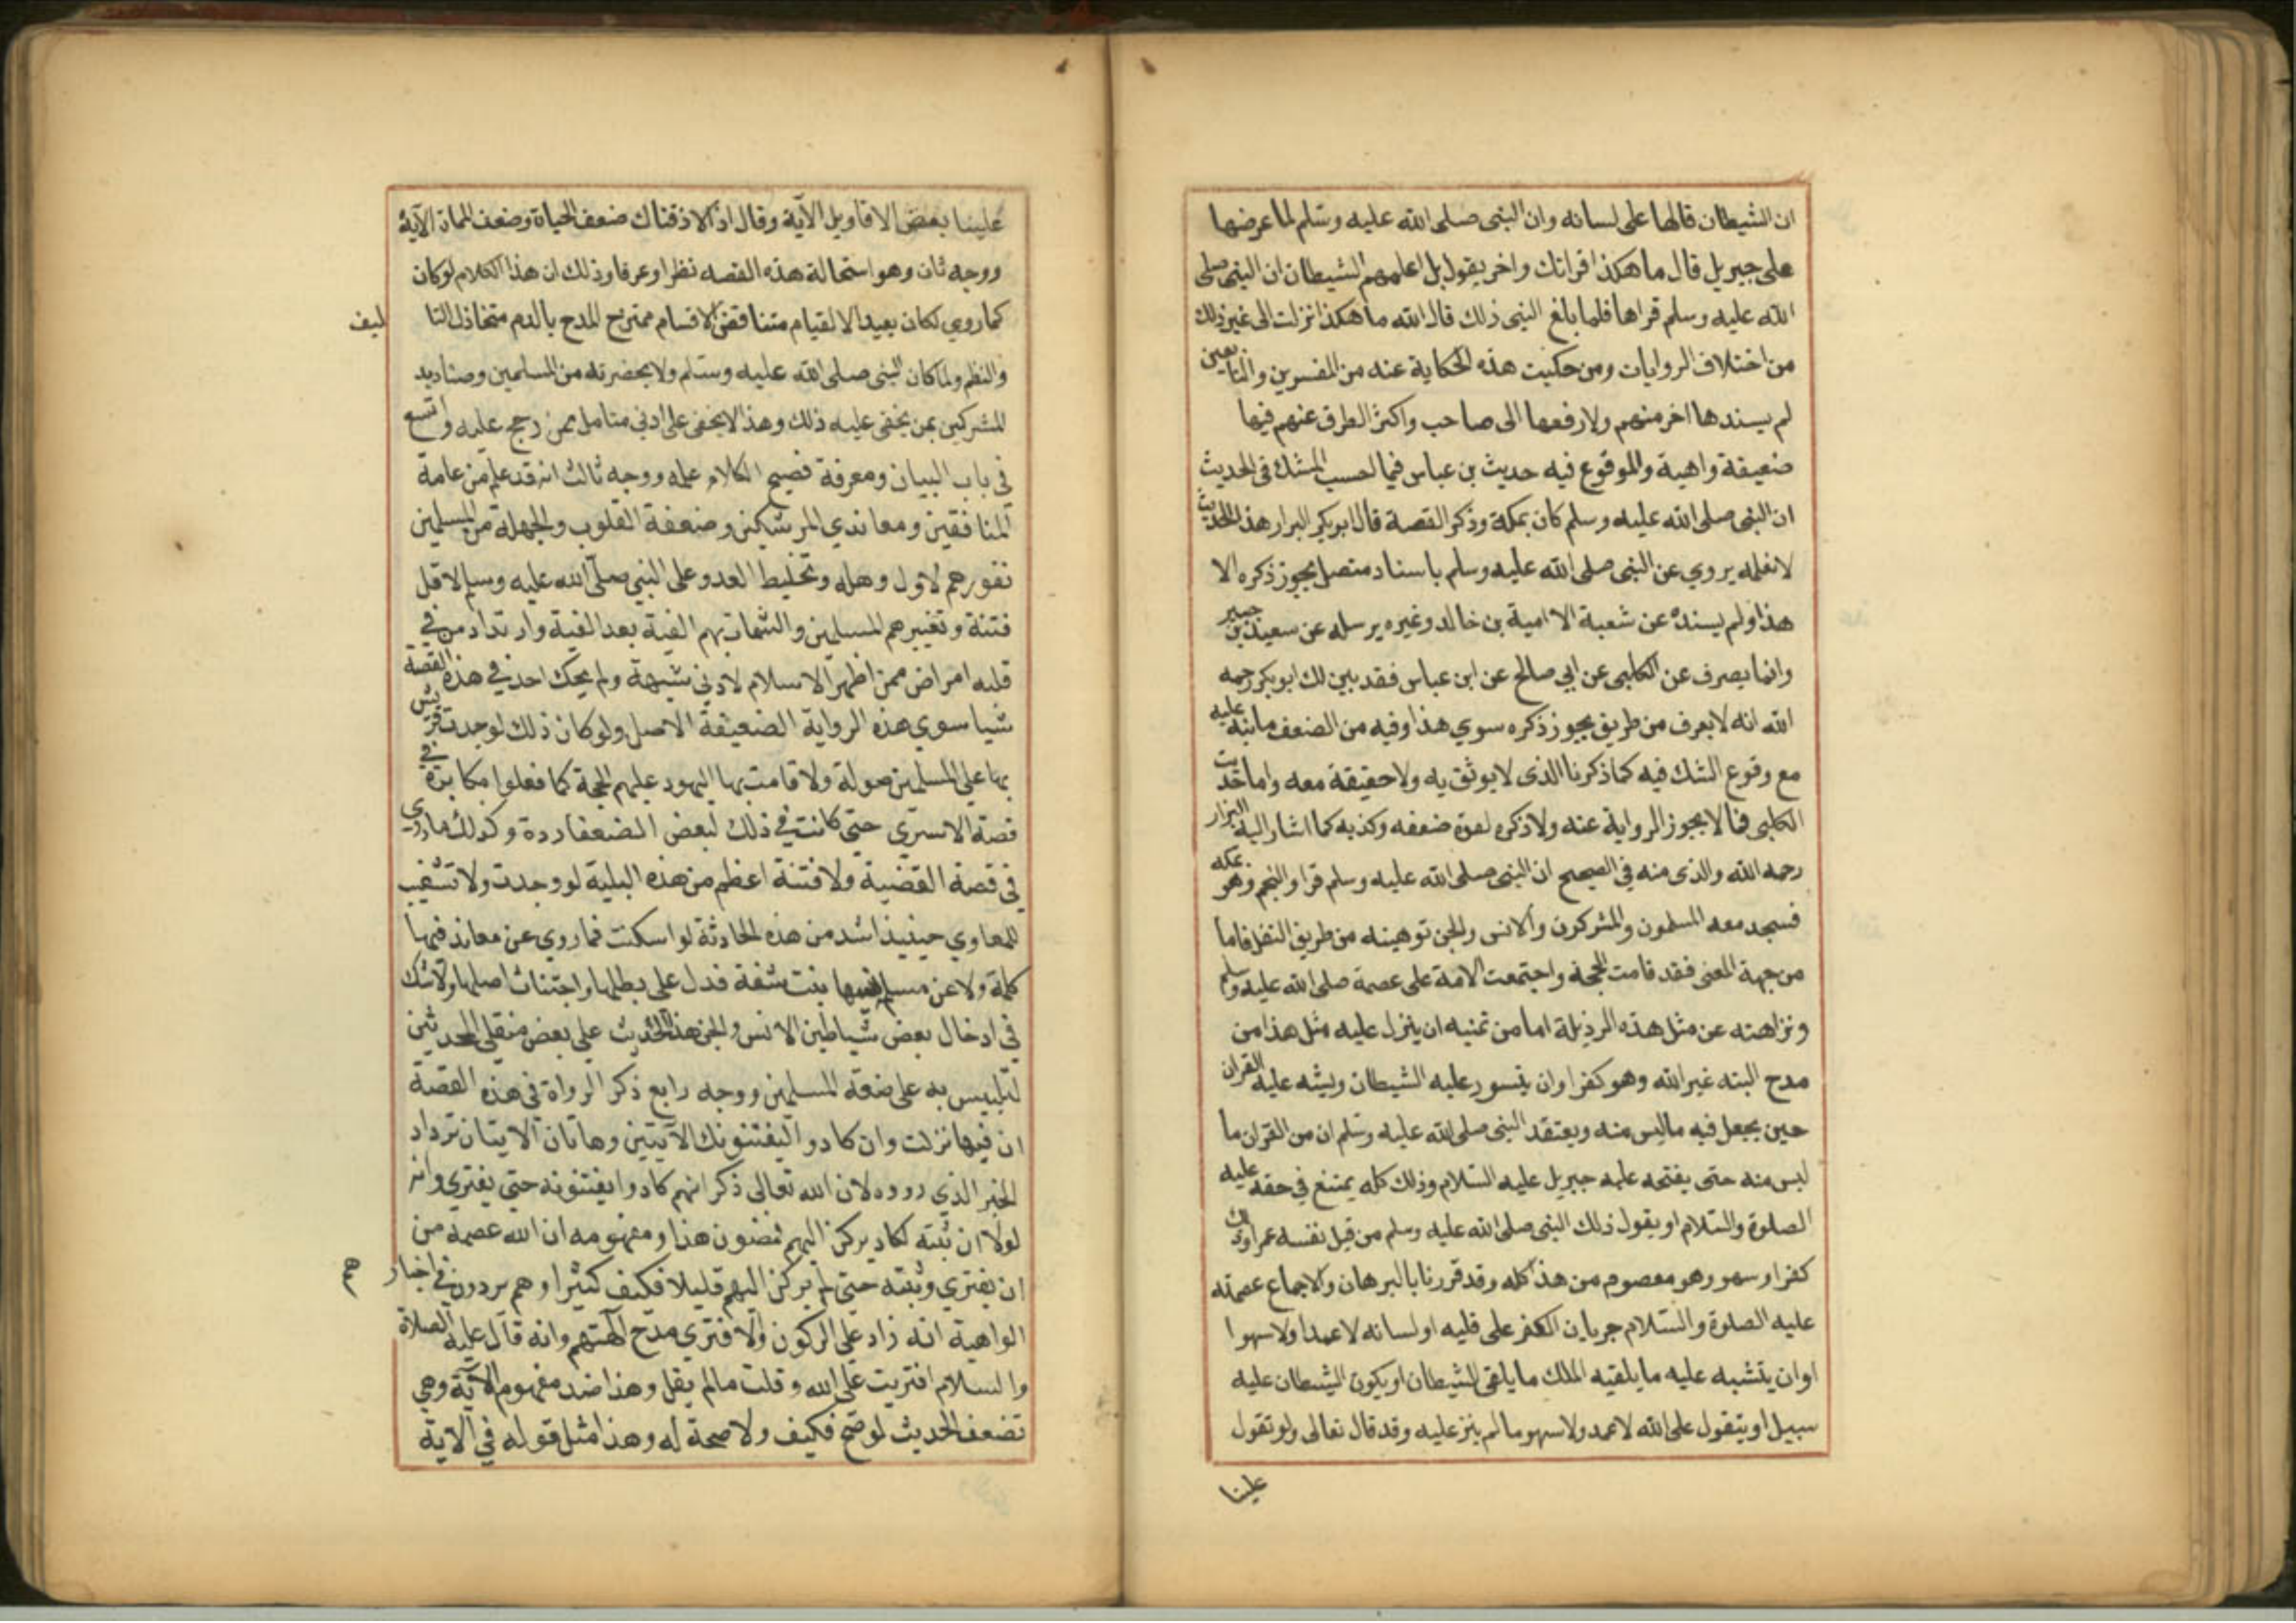 ان الشيطان قالها على لسانه وان النبى صلى الله عليه وسلم لما عرضها
على جبريل قال ما هكذا اقراتك واخر يقول بل اعلمهم الشيطان ان النبى صلى
الله عليه وسلم قراها فلما بلغ النبى ذلك قال الله ما هكذا انزلت الى غير ذلك
من اختلاف الروايات ومن حكيت هذه الحكاية عنه من المفسرين والتابعين
لم يسندها اخر منهم ولا رفعها الى صاحب واكثر الطرق عنهم فيها
ضعيفة واهية والموقوع فيه حديث بن عباس فيما احسب الشك فى الحديث
ان النبى صلى الله عليه وسلم كان بمكة وذكر القصة قال ابو بكر البرار هذا الحديث
لا نعلمه يروي عن النبى صلى الله عليه وسلم باسناد متصل يجوز ذكره الا
هذا ولم يسنده عن شعبة الا امية بن خالد وغيره يرسله عن سعيد بن جبير
وانما يصرف عن الكلبى عن ابي صالح عن ابن عباس فقد بين لك ابو بكر رحمه
الله انه لا يعرف من طريق يجوز ذكره سوي هذا وفيه من الضعف ما نبه عليه
مع وقوع الشك فيه كما ذكرنا الذى لا يوثق به ولا حقيقة معه واما حديث
الكلبى فما لا يجوز الرواية عنه ولا ذكره لقوة ضعفه وكذبه كما اشار اليه البزار
رحمه الله والذى منه في الصحيح ان النبى صلى الله عليه وسلم قرا والنجم وهو بمكه
فسجد معه المسلمون والمشركون والانس والجن توهينه من طريق النقل فاما
من جهة المعنى فقد قامت الحجة واجتمعت الامة على عصمة صلى الله عليه وسلم
ونزاهته عن مثل هذه الرذيلة اما من تمنيه ان ينزل عليه مثل هذا من
مدح البته غير الله وهو كفر او ان يتسور عليه الشيطان ويشبه عليه القران
حين يجعل فيه ما ليس منه ويعتقد النبى صلى الله عليه وسلم ان من القران ما
ليس منه حتى يفتحه عليه جبريل عليه السلام وذلك كله يمتنع في حقه عليه
الصلوة والسلام او يقول ذلك النبى صلى الله عليه وسلم من قبل نفسه عمدا وذلك
كفر او سهو وهو معصوم من هذا كله وقد قررنا بالبرهان والاجماع عصمته
عليه الصلوة والسلام جريان الكفر على قلبه او لسانه لا عمدا ولا سهوا
او ان يتشبه عليه ما يلقيه الملك ما يلقى الشيطان او يكون الشيطان عليه
سبيل او يتقول على الله لا عمد ولا سهو ما لم ينز عليه وقد قال تعالى ولو تقول
علينا
علينا بعض الاقاويل الآية وقال اذا لاذقناك ضعف الحياة وضعف الممات الآية
ووجه ثان وهو استحالة هذه القصه نظرا وعرفا وذلك ان هذا الكلام لو كان
كما روي لكان بعيد الالقيام متناقض الاقسام ممتزح المدح بالدم متخاذل التا
ليف
والنظم ولما كان النبى صلى الله عليه وستلم ولا بحضرته من المسلمين وصناديد
المشركين بمن يخفى عليه ذلك وهذا لا يخفى على ادنى متامل بمن رجح عليه واتسع
في باب البيان ومعرفة فصيح الكلام علمه ووجه ثالث انه قد علم من عامة
المنافقين ومعاندي المرشكين وضعفة القلوب والجهلة من المسلمين
نفورهم لاول وهله وتخليط العدو على النبي صلى الله عليه وسلم لاقل
فتنة وتغييرهم المسلمين والشمات بهم الفية بعد الفية وارتداد من في
قلبه امراض ممن اظهر الاسلام لادني شبهة ولم يحك احد في هذه القصة
شيا سوي هذه الرواية الضعيفة الاصل ولو كان ذلك لوجدت قريش
بها على المسلمين صولة ولا قامت بها اليهود عليهم الحجة كما فعلوا مكابرة في
قصة الاسترى حتى كانت في ذلك لبعض الضعفا ردة وكذلك ما روي
في قصة القضية ولا فتنة اعظم من هذه البلية لو وجدت ولا تشغيب
للمعاوي حينيذ اشد من هذه الحادثة لو اسكنت فما روي عن معاند فيها
كلمة ولا عن مسلم بنت شفة فدل على بطلها واجتناث اصلها ولا شك
في ادخال بعض شياطين الانس والجن هذا الحديث على بعض منقلى المحدثين
لتلبيس به على ضعفة المسلمين ووجه رابع ذكر الرواة في هذه القصة
ان فيها نزلت وان كادوا ليفتنونك الآيتين وهاتان الايتان ترداد
الخبر الذي رووه لان الله تعالى ذكر انهم كادوا يفتنونه حتى يفتري وانه
لولا ان ثبته لكاد يركن اليهم فضنون هذا ومفهومه ان الله عصمه من
ان يفتري وثبته حتى لم يركن اليهم قليلا فكيف كثيرا وهم يردون في اخبار
هم
الواهية انه زاد على الركون والافتري مدح آلهتهم وانه قال عليه الصلاة
والسلام افتريت على الله وقلت ما لم يقل وهذا ضد مفهوم الآية وهي
تضعف الحديث لو صح فكيف ولا صحة له وهذا مثل قوله في الاية